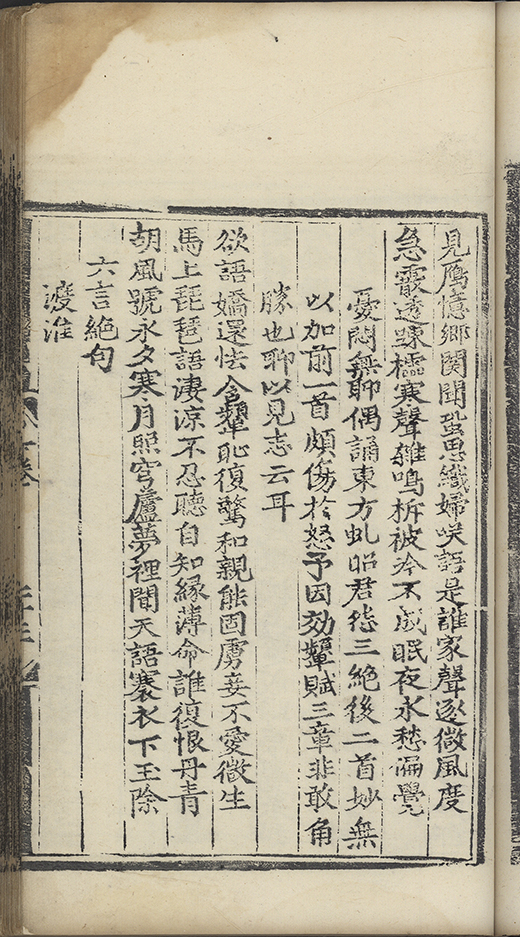 見鴈憶鄉関聞蛩思織婦咲語是誰家聲逐微風度
急霰透踈櫺寒聲雜鳴柝被冷不成眠夜永愁偏覺
憂悶無聊偶誦東方虬昭君怨三絶後二首妙無
以加前一首頗傷於怒予因効顰賦三章非敢角
勝也聊以見志云耳
欲語嬌還怯含顰恥復驚和親能固虜妾不愛微生
馬上琵琶語淒涼不忍聽自知縁薄命誰復恨丹青
胡風號永夕寒月照穹蘆夢裡聞天語褰衣下玉除
六言絶句
渡淮